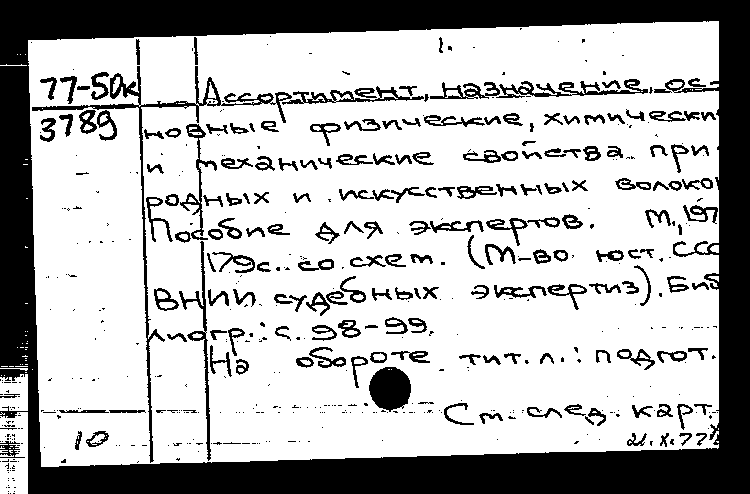 1.
77-50к Ассортимент, назначение, ос-
3789 новные физические, химически
и механические свойства при
родных и искусственных волоко
Пособие для экспертов. М., 197
179с. со схем. (М-во юст. ССС
ВНИИ судебных экспертиз). Биб
лиогр.: с. 98-99.
На обороте тит. л.: подгот.
См. след. карт.
10 21.X.77